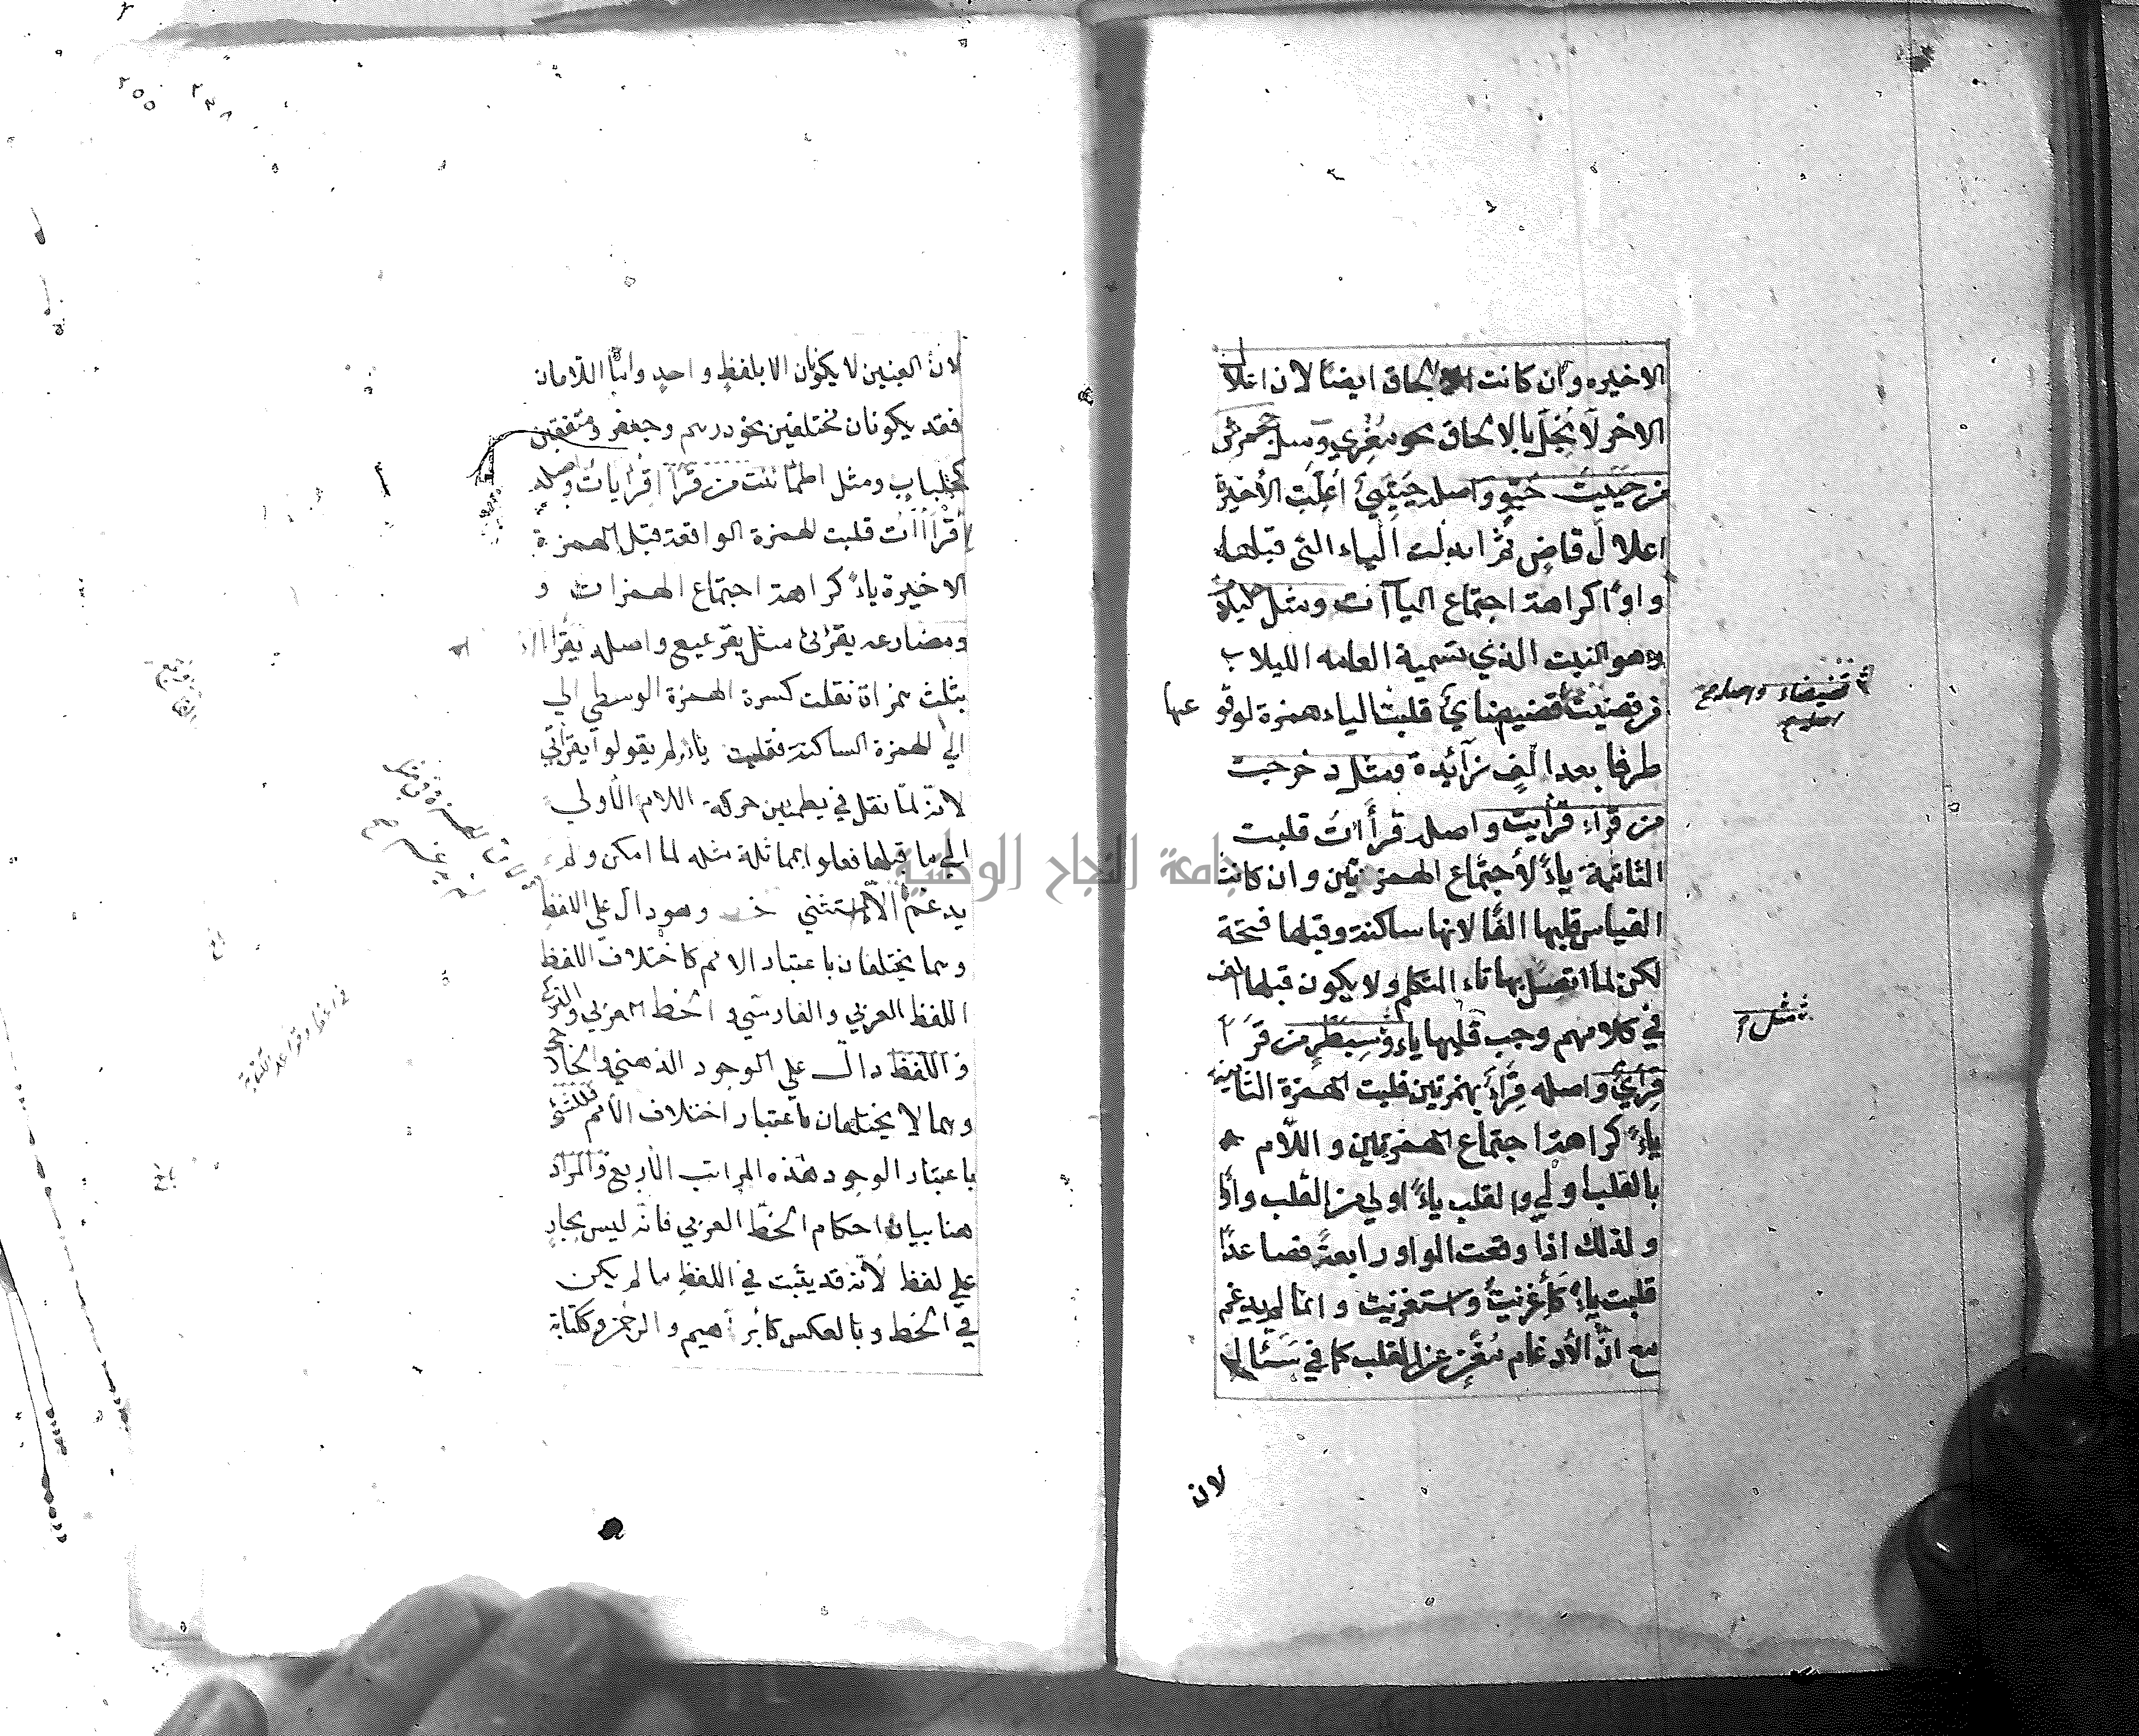 الاخيره وان كانت الالحاق ايضاً لان اعلال
الاخر لا يُخِلّ بالالحاق نحو مُغْزِي ومثل جحمرش
من حَيَيتُ حَيَّوٍ واصله حَيَّيِيٌ اُعِلَّت الاخيرة
اعلال قاضٍ ثم ابدلت الياء التي قبلها
واوًا كراهة اجتماع اليآآت ومثل حلبلاب
وهو النبت الذي تسمية العامه اللبلاب
من قضيت قضيضاي قلبت الياء همزة لوقوعها
قضيضاء واصله
طرفا بعد الفٍ زآئدة ومثل دخرجت
من قراء قرأيت واصله قرأأت قلبت
الثانية ياءً لاجتماع الهمزتين وان كانت
القياس قلبها الفًا لانها ساكنة وقبلها فتحة
لكن لما اتصل بها تاء المتكلم ولا يكون قبلها الف
في كلامهم وجب قلبها ياء وسِبَطْرٍ من قَرَأَ
مثل
قِرَأيٌ واصله قِرَأْءٌ بهمزتين قلبت الهمزة الثانية
ياءً كراهة اجتماع الهمزتين واللام
بالقلب اولي والقلب ياءً اولي من القلب واوًا
ولذلك اذا وقعت الواو رابعةً فصاعدًا
قلبت ياءً كأغزيتُ واستغزيت وانما لم يدغم
مع انّ الأدغام مُغْنٍ عن القلب كما في سَئّال
لان
٢٥٥
٢٣٨
لان العينين لا يكونان الا بلفظٍ واحدٍ وامّا اللامان
فقد يكونان مختلفين نحو درهم وجعفر ومتفقين
كجلباب ومثل اطمأننت من قَرَأَ اقْرَأْيَأْتُ واصله
اقْرَأْأَأْت قلبت الهمزة الواقعة قبل الهمزة
الاخيرة ياءً كراهة اجتماع الهمزات و
ومضارعه يقرئئ مثل يقرعيع واصله يقرأأأ
بثلث همزاة نقلت كسرة الهمزة الوسطي الي
الي الهمزة الساكنة فقلبت ياء ولم يقولوا يقرأئي
لانّه لمّا نقل في يطمئن حركة اللام الأولي
الي ما قبلها فعلوا بمماثلة مثله لما امكن ولم
يدغم الّا المستثني وهو دال علي اللفظ
وهما يختلفان باعتبار الامم كاختلاف اللفظ
اللفظ العربي والفارسي والخط العربي والتركي
واللفظ دالّ علي الوجود الذهني والخارجي
وهما لا يختلفان باعتبار اختلاف الأمم فللشئ
باعتبار الوجود هذه المراتب الأربع والمراد
هنا بيان احكام الخطّ العربي فانّه ليس بجارٍ
علي لفظ لأنّه قد يثبت في اللفظِ ما لم يكن
في الخط وبالعكس كابرآهيم والرحمن وكتابة
في الخط وقواعد الكتابة
جامعة النجاح الوطنية